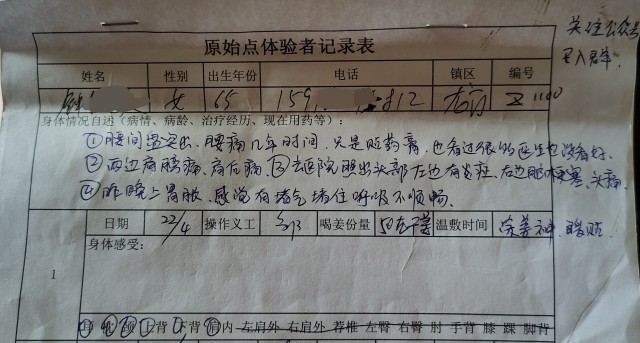 关注公众号
原始点体验者记录表
姓名 性别 出生年份 电话 镇区 编号
女 65 159 812 1100
身体情况自述（病情、病龄、治疗经历、现在用药等）：
①腰间盘突出、腰痛几年时间，只是贴药膏，也看过很多医生也没看好。
②两边肩膀痛、肩后痛，③去医院照出头部左边有炎症，右边眼 塞，头痛
④昨晚上胃胀，感觉有堵气堵住呼吸不顺畅。
日期 22/4 操作义工 喝姜份量 温敷时间 暖贴
身体感受：
1
背 背 肩内 左肩外 右肩外 荐椎 左臀 右臀 肘 手背 膝 踝 脚背